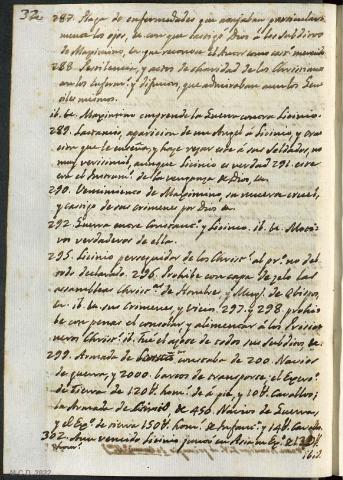 32
287. Plaga de enfermedades que atacaban particular-
mente los ojos, de con que castigó Dios á los Subditos
de Maximino, en que reconoce el Autor como
288. Pestilencia, y actos de charidad de los Christianos
con los enfermos y difuntos, que admiraban aun los Gen-
tiles mismos.
ib. be. Maximino emprende la Guerra contra Licinio.
289. Lactancio, aparicion de un Angel á Licinio, y ora-
cion que le enseña, y haze rezar este á sus Soldados, no
muy verisimil, aunque Licinio es verdad 291. este
era el Instrumto. de la venganza de Dios, &a.
290. Vencimiento de Maximino, su muerte cruel,
y castigo de sus crimenes por Dios &a.
292. Guerra entre Constanto. y Licinio. ib. be. Moti-
vos verdaderos de ella.
295. Licinio perseguidor de los Christs. al pro. no del
todo declarado. 296. Prohibe con capa de zelo las
assembleas Christas. de Hombres, y Mugs. de Obispos,
&a. ib. be. sus Crimenes, y vicios. 297. y 298. prohi-
be con penas el consolar y alimentar á los Prisio-
neros Christs. ib. fue el azote de todos sus Subditos, &a.
299. Armada de constaba de 200. Navios
de guerra, y 2000. barcos de transporte, el Exerco.
de tierra de 120 homs. de á pie, y 10 Cavallos;
la Armada de Licinio, de 450. Navios de Guerra,
y el Exo. de tierra 150 homs. de Infanta. y 14 Cavallos.
302. Aun vencido Licinio juntó en Asia un Exo. de 130
16.